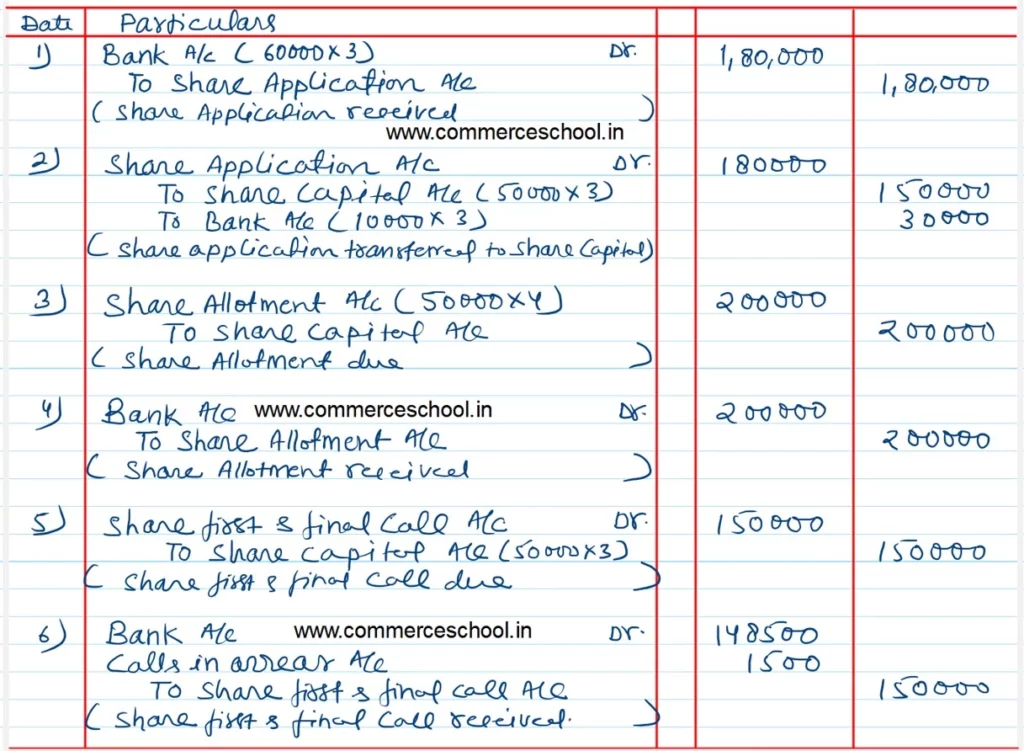 Date Particulars
1) Bank A/c ( 60000×3) Dr. 1,80,000
To Share Application A/c 1,80,000
( Share Application received )
www.commerceschool.in
2) Share Application A/c Dr. 180000
To Share Capital A/c (50000×3) 150000
To Bank A/c (10000×3) 30000
( Share application transferred to Share Capital)
3) Share Allotment A/c (50000×4) 200000
To Share Capital A/c 200000
( Share Allotment due )
4) Bank A/c www.commerceschool.in Dr. 200000
To Share Allotment A/c 200000
( Share Allotment received )
5) Share first & final Call A/c Dr. 150000
To Share Capital A/c (50000×3) 150000
( Share first & final Call due )
6) Bank A/c www.commerceschool.in Dr. 148500
Calls in arrear A/c 1500
To Share first & final call A/c 150000
( Share first & final Call received. )